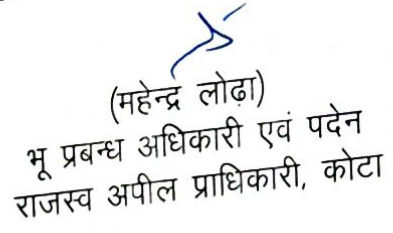 (महेन्द्र लोढ़ा)
भू प्रबन्ध अधिकारी एवं पदेन
राजस्व अपील प्राधिकारी, कोटा